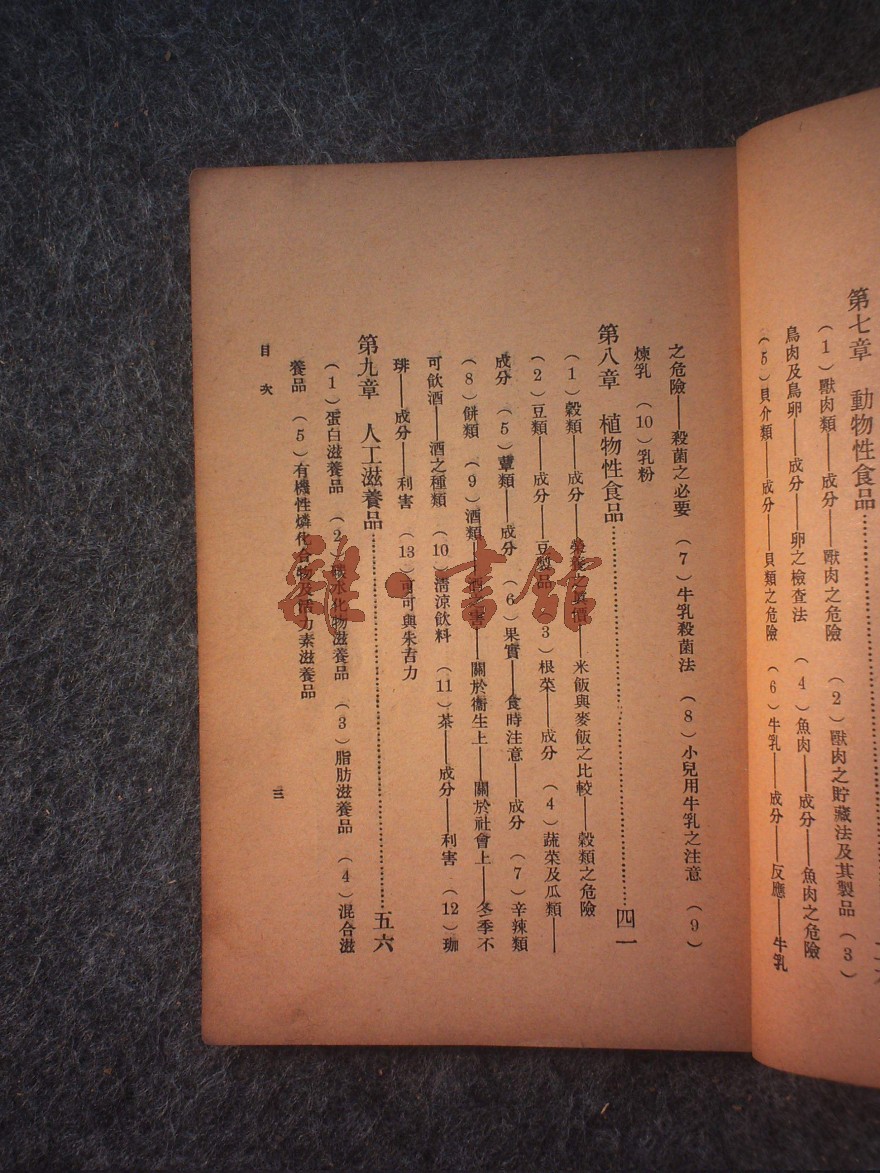 第七章　動物性食品
（1）獸肉類——成分——獸肉之危險　（2）獸肉之貯藏法及其製品（3）
鳥肉及鳥卵——成分——卵之檢查法　（4）魚肉——成分——魚肉之危險
（5）貝介類——成分——貝類之危險　（6）牛乳——成分——反應——牛乳
之危險——殺菌之必要　（7）牛乳殺菌法　（8）小兒用牛乳之注意　（9）
煉乳　（10）乳粉
第八章　植物性食品……四一
（1）穀類——成分——榮養之眞價——米飯與麥飯之比較——穀類之危險
（2）豆類——成分——豆製品　（3）根菜——成分　（4）蔬菜及瓜類——
成分　（5）蕈類——成分　（6）果實——食時注意——成分　（7）辛辣類
（8）餅類　（9）酒類——酒之害——關於衞生上——關於社會上——冬季不
可飲酒——酒之種類　（10）淸涼飲料　（11）茶——成分——利害　（12）珈
琲——成分——利害　（13）可可與朱古力
第九章　人工滋養品……五六
（1）蛋白滋養品　（2）碳水化物滋養品　（3）脂肪滋養品　（4）混合滋
養品　（5）有機性燐化合物及活力素滋養品
目次
三
雜·書館